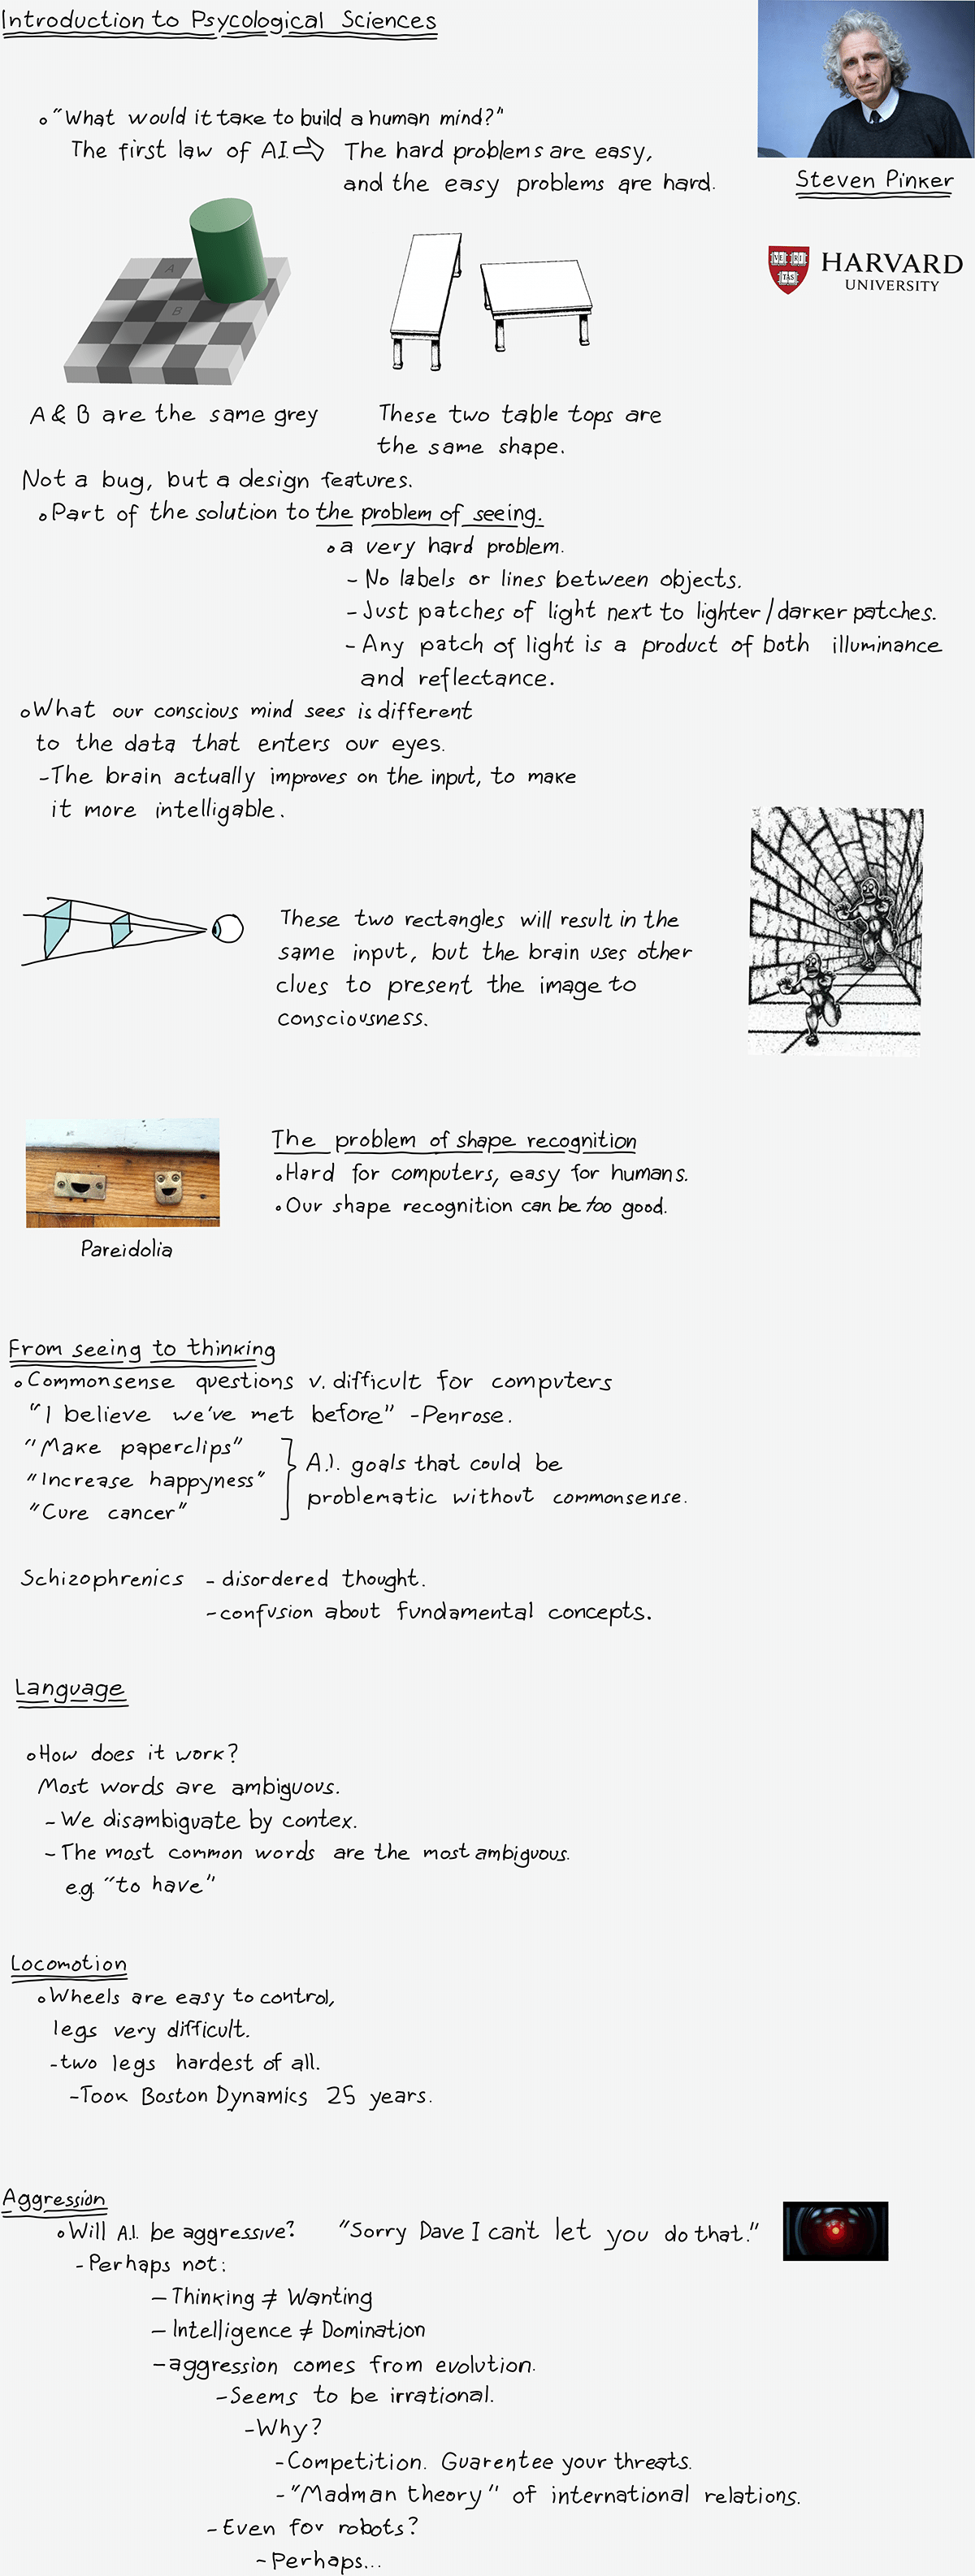 Introduction to Psycological Sciences
∘"What would it take to build a human mind?"
The first law of A.I. ⇨ The hard problems are easy,
and the easy problems are hard.
Steven Pinker
VE RI
TAS
HARVARD
UNIVERSITY
A
B
A & B are the same grey
These two table tops are
the same shape.
Not a bug, but a design features.
∘Part of the solution to the problem of seeing.
∘a very hard problem.
- No labels or lines between objects.
- Just patches of light next to lighter/darker patches.
- Any patch of light is a product of both illuminance
and reflectance.
∘What our conscious mind sees is different
to the data that enters our eyes.
-The brain actually improves on the input, to make
it more intelligable.
These two rectangles will result in the
same input, but the brain uses other
clues to present the image to
consciousness.
The problem of shape recognition
∘Hard for computers, easy for humans.
∘Our shape recognition can be too good.
Pareidolia
From seeing to thinking
∘Commonsense questions v. difficult for computers
"I believe we've met before" -Penrose.
"Make paperclips"
"Increase happyness"
"Cure cancer"
A.I. goals that could be
problematic without commonsense.
Schizophrenics - disordered thought.
-confusion about fundamental concepts.
Language
∘How does it work?
Most words are ambiguous.
- We disambiguate by contex.
- The most common words are the most ambiguous.
e.g. "to have"
Locomotion
∘Wheels are easy to control,
legs very difficult.
-two legs hardest of all.
-Took Boston Dynamics 25 years.
Aggression
∘Will A.I. be aggressive? "Sorry Dave I can't let you do that."
- Perhaps not:
— Thinking ≠ Wanting
— Intelligence ≠ Domination
—aggression comes from evolution.
-Seems to be irrational.
-Why?
-Competition. Guarentee your threats.
-"Madman theory" of international relations.
-Even for robots?
-Perhaps...